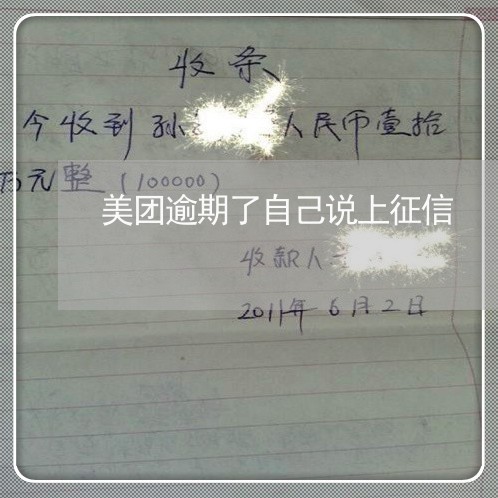 收条
今收到孙 人民币壹拾
万元整(100000)
美团逾期了自己说上征信
收款人
2011年6月2日